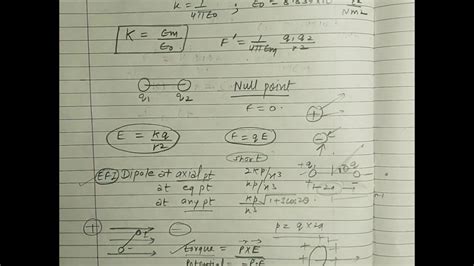 k = 1/4πε0 ; ε0 =
Nm2
K = εm/ε0
F' = 1/4πεm q1q2/r2
q1 q2
Null point
F = 0
+
-
E = kq/r2
F = qE
short
EFI Dipole at axial pt 2kp/r3
at eq pt kp/r3
at any pt kp/r3 √1+3cos2θ
+ 2a
p = q x 2a
+ -
torque = P x E
Potential = -P.E